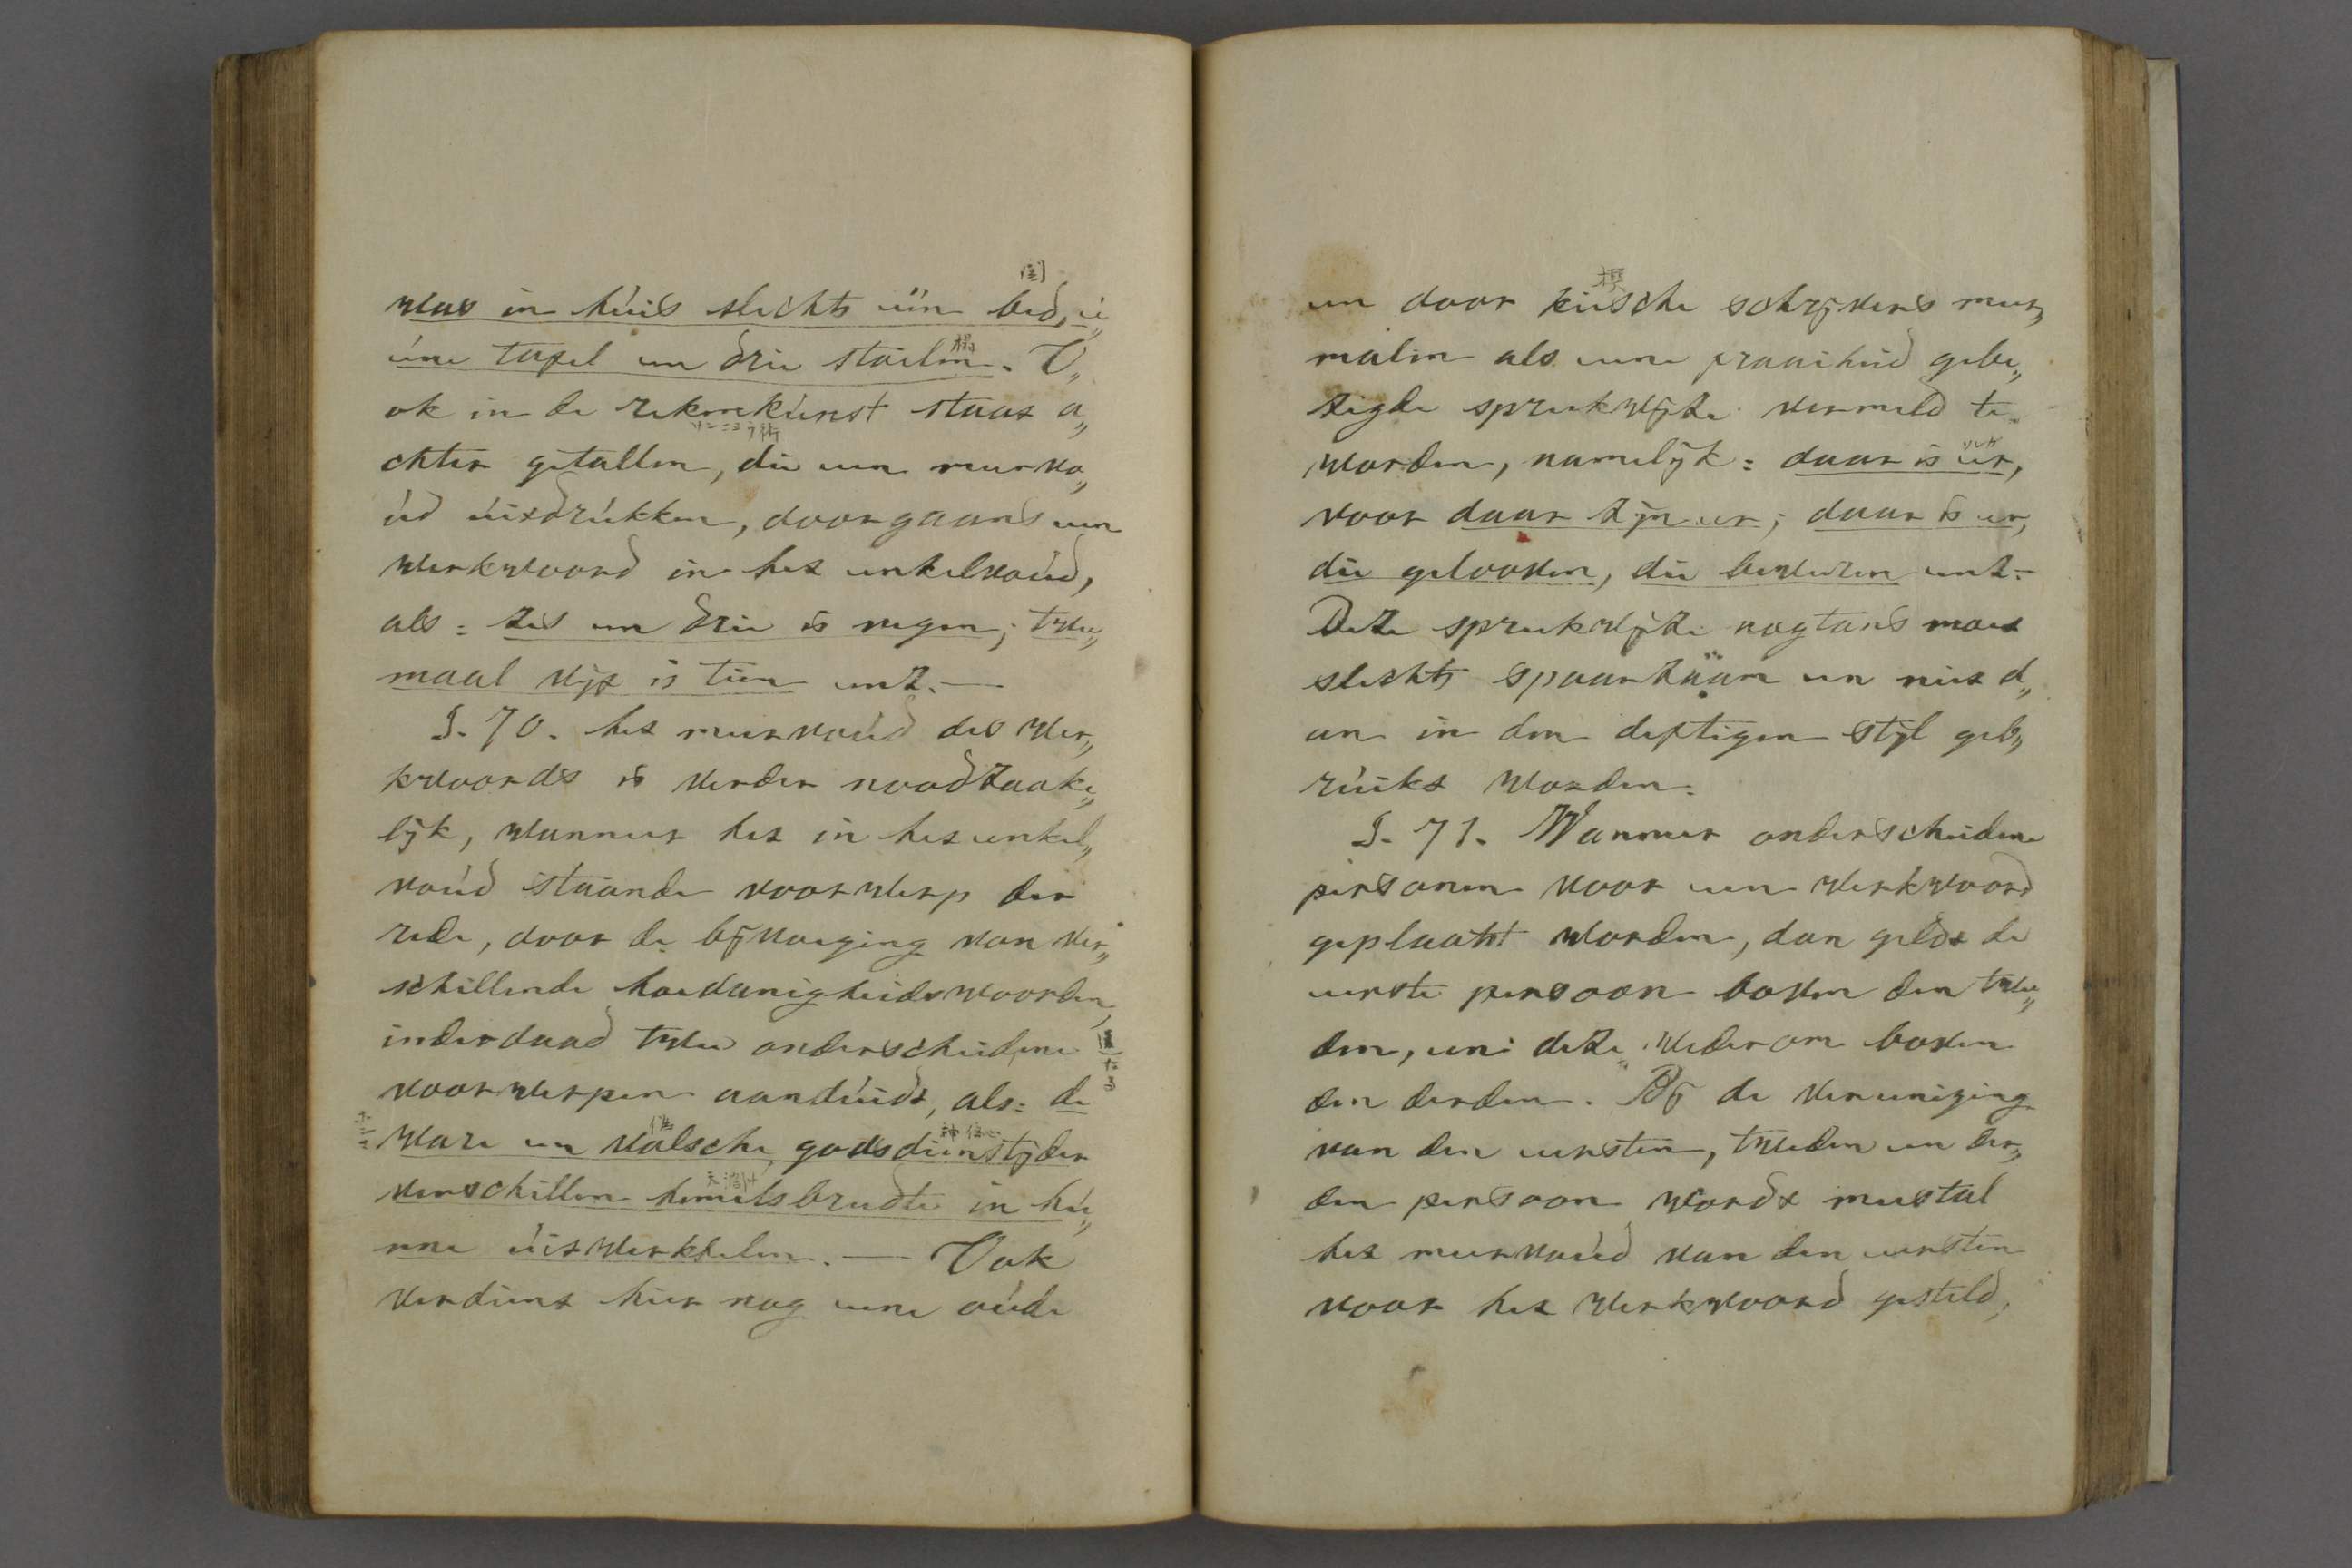 was in huis slechts één bed, é„
éne tafel en drie stoelen. O„
ok in de rekenkunst staat a„
chter getallen, die een meervo„
ud uitdrukken, doorgaans een
werkwoord in het enkelvoud,
als: zes en drie is negen; twee„
maal vijf is tien enz.—
§. 70. het meervoud des wer„
kwoords is verder noodzaake„
lijk, wanneer het in het enkel„
voud staande voorwerp der
rede, door de bijvoeging van ver„
schillende hoedanigheidswoorden,
inderdaad twee onderscheidene
voorwerpen aanduidt, als: de
ware en valsche godsdienstijder
verschillen hemelsbreedte in hu„
nne uitwerkselen. — Ook
verdient hier nog eene oude
en door kiesche schrijvers mer„
malen als eene fraaiheid gebe„
zigde spreekwijze vermeld te
worden, namelijk: daar is er,
voor daar zijn er; daar is er,
die gelooven, die beweren enz.
Deze spreekwijze nogtans moet
slechts spaarzaam en niet d„
an in den deftigen stijl geb„
ruikt worden.
§. 71. Wanneer onderscheidene
personen voor een werkwoord
geplaatst worden, dan geldt de
eerste persoon boven den twee„
den, en deze wederom boven
den derden. Bij de vereeniging
van den eersten, tweeden en der„
den persoon wordt meestal
het meervoud van den eersten
voor het werkwoord gesteld;